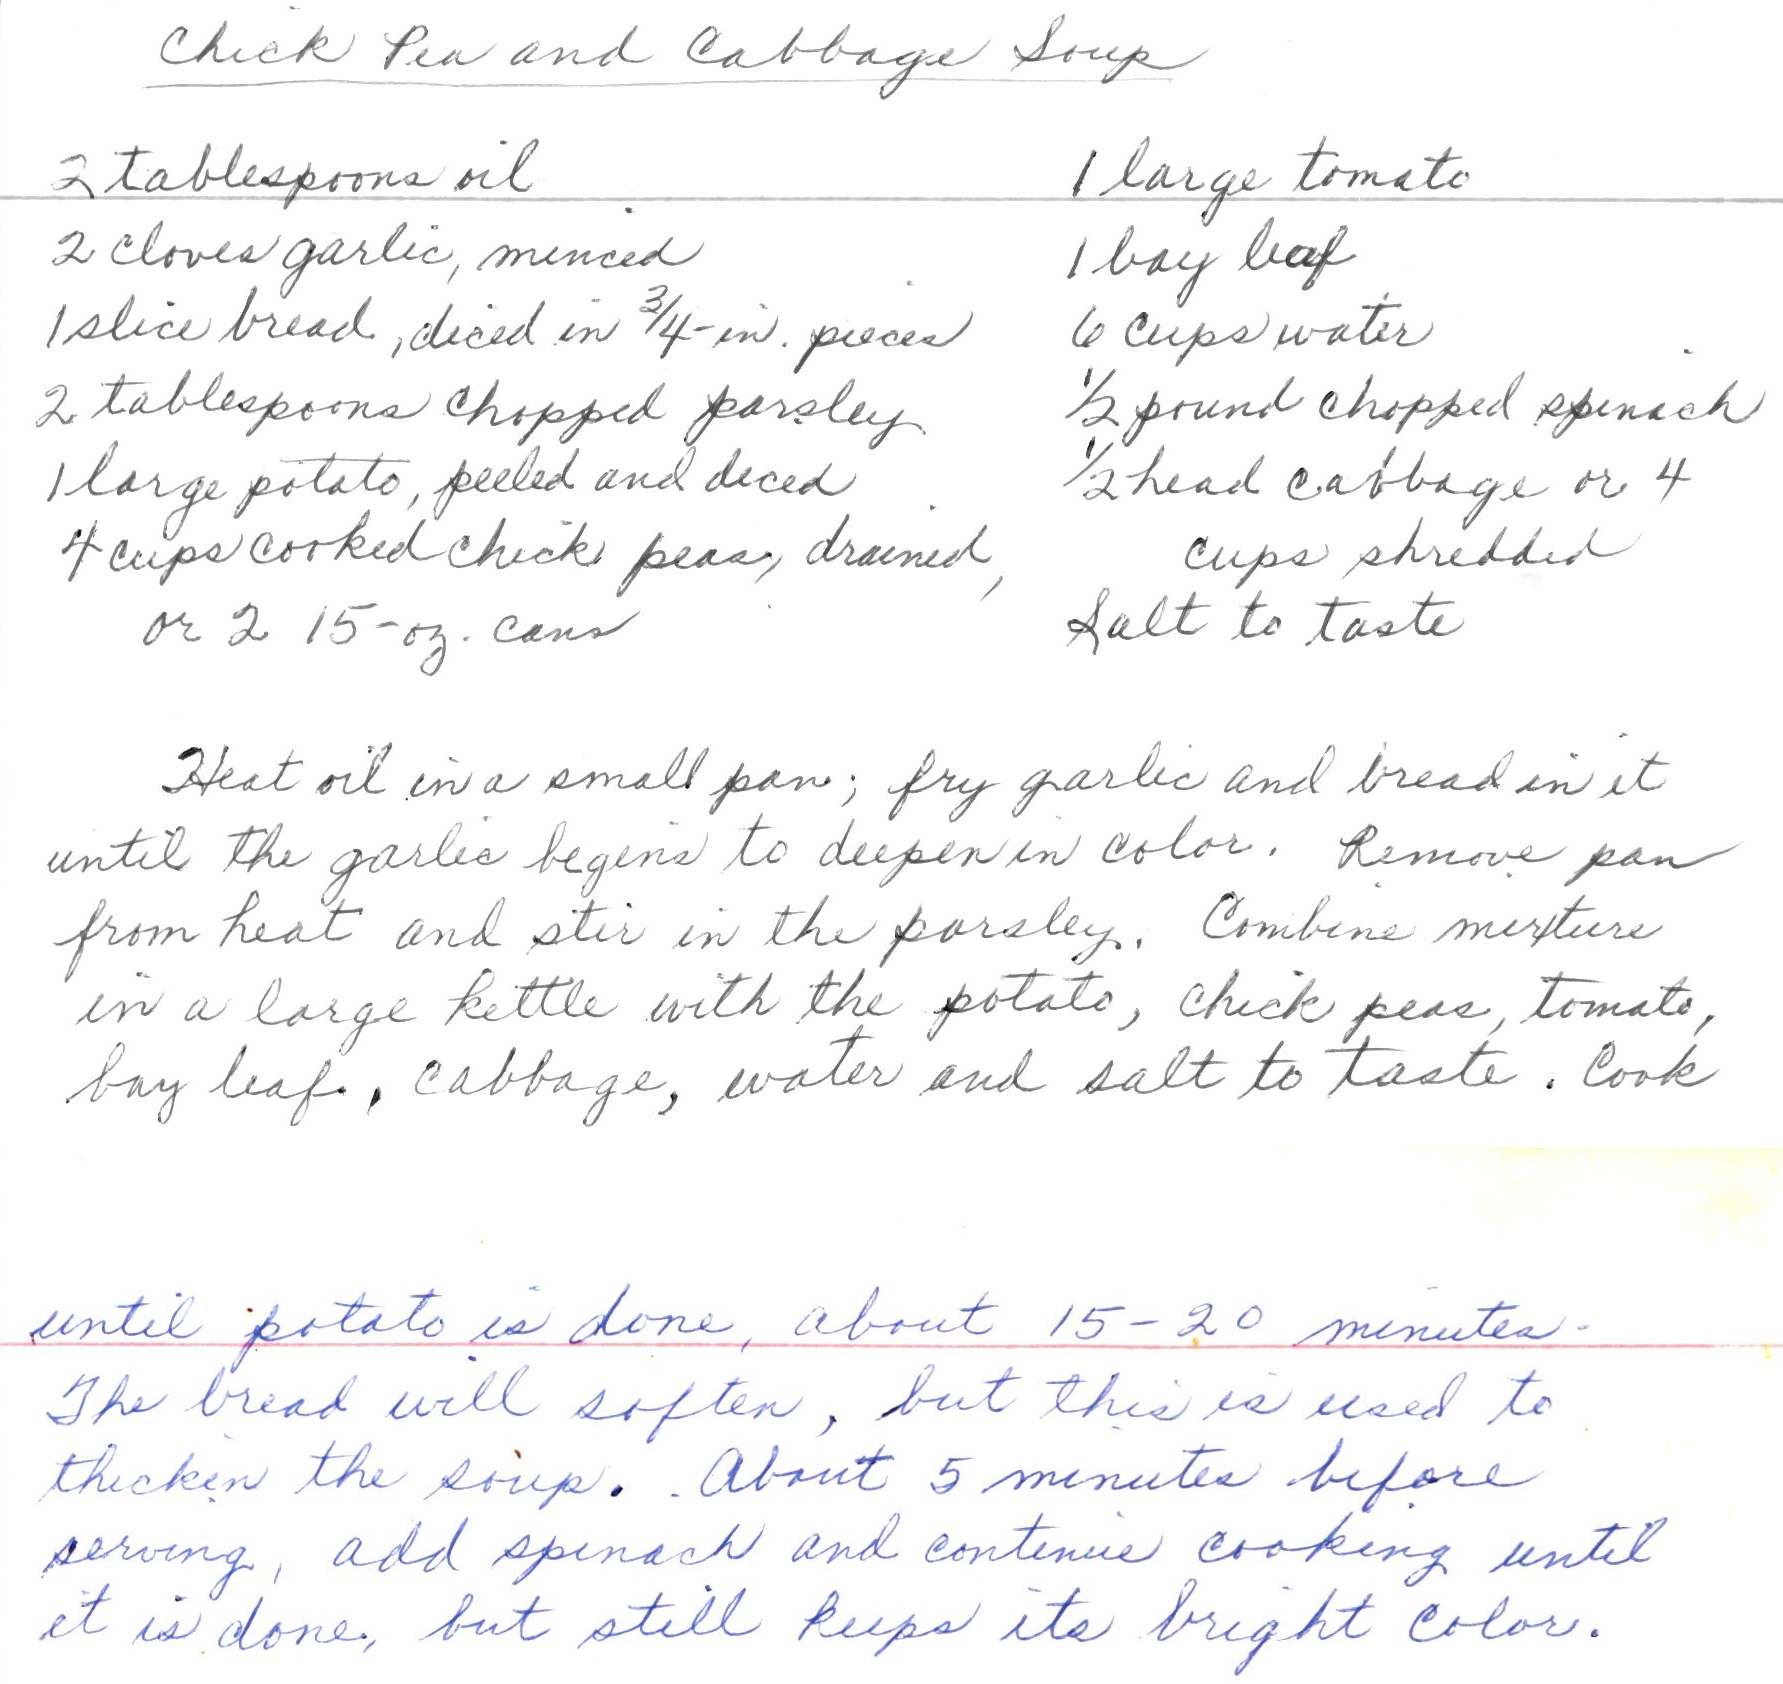 Chick Pea and Cabbage Soup
2 tablespoons oil
2 cloves garlic, minced
1 slice bread, diced in 3/4-in. pieces
2 tablespoons chopped parsley
1 large potato, peeled and diced
4 cups cooked chick peas, drained,
or 2 15-oz. cans
1 large tomato
1 bay leaf
6 cups water
1/2 pound chopped spinach
1/2 head cabbage or 4
cups shredded
Salt to taste
Heat oil in a small pan; fry garlic and bread in it
until the garlic begins to deepen in color. Remove pan
from heat and stir in the parsley. Combine mixture
in a large kettle with the potato, chick peas, tomato,
bay leaf, cabbage, water and salt to taste. Cook
until potato is done, about 15-20 minutes.
The bread will soften, but this is used to
thicken the soup. About 5 minutes before
serving, add spinach and continue cooking until
it is done, but still keeps its bright color.